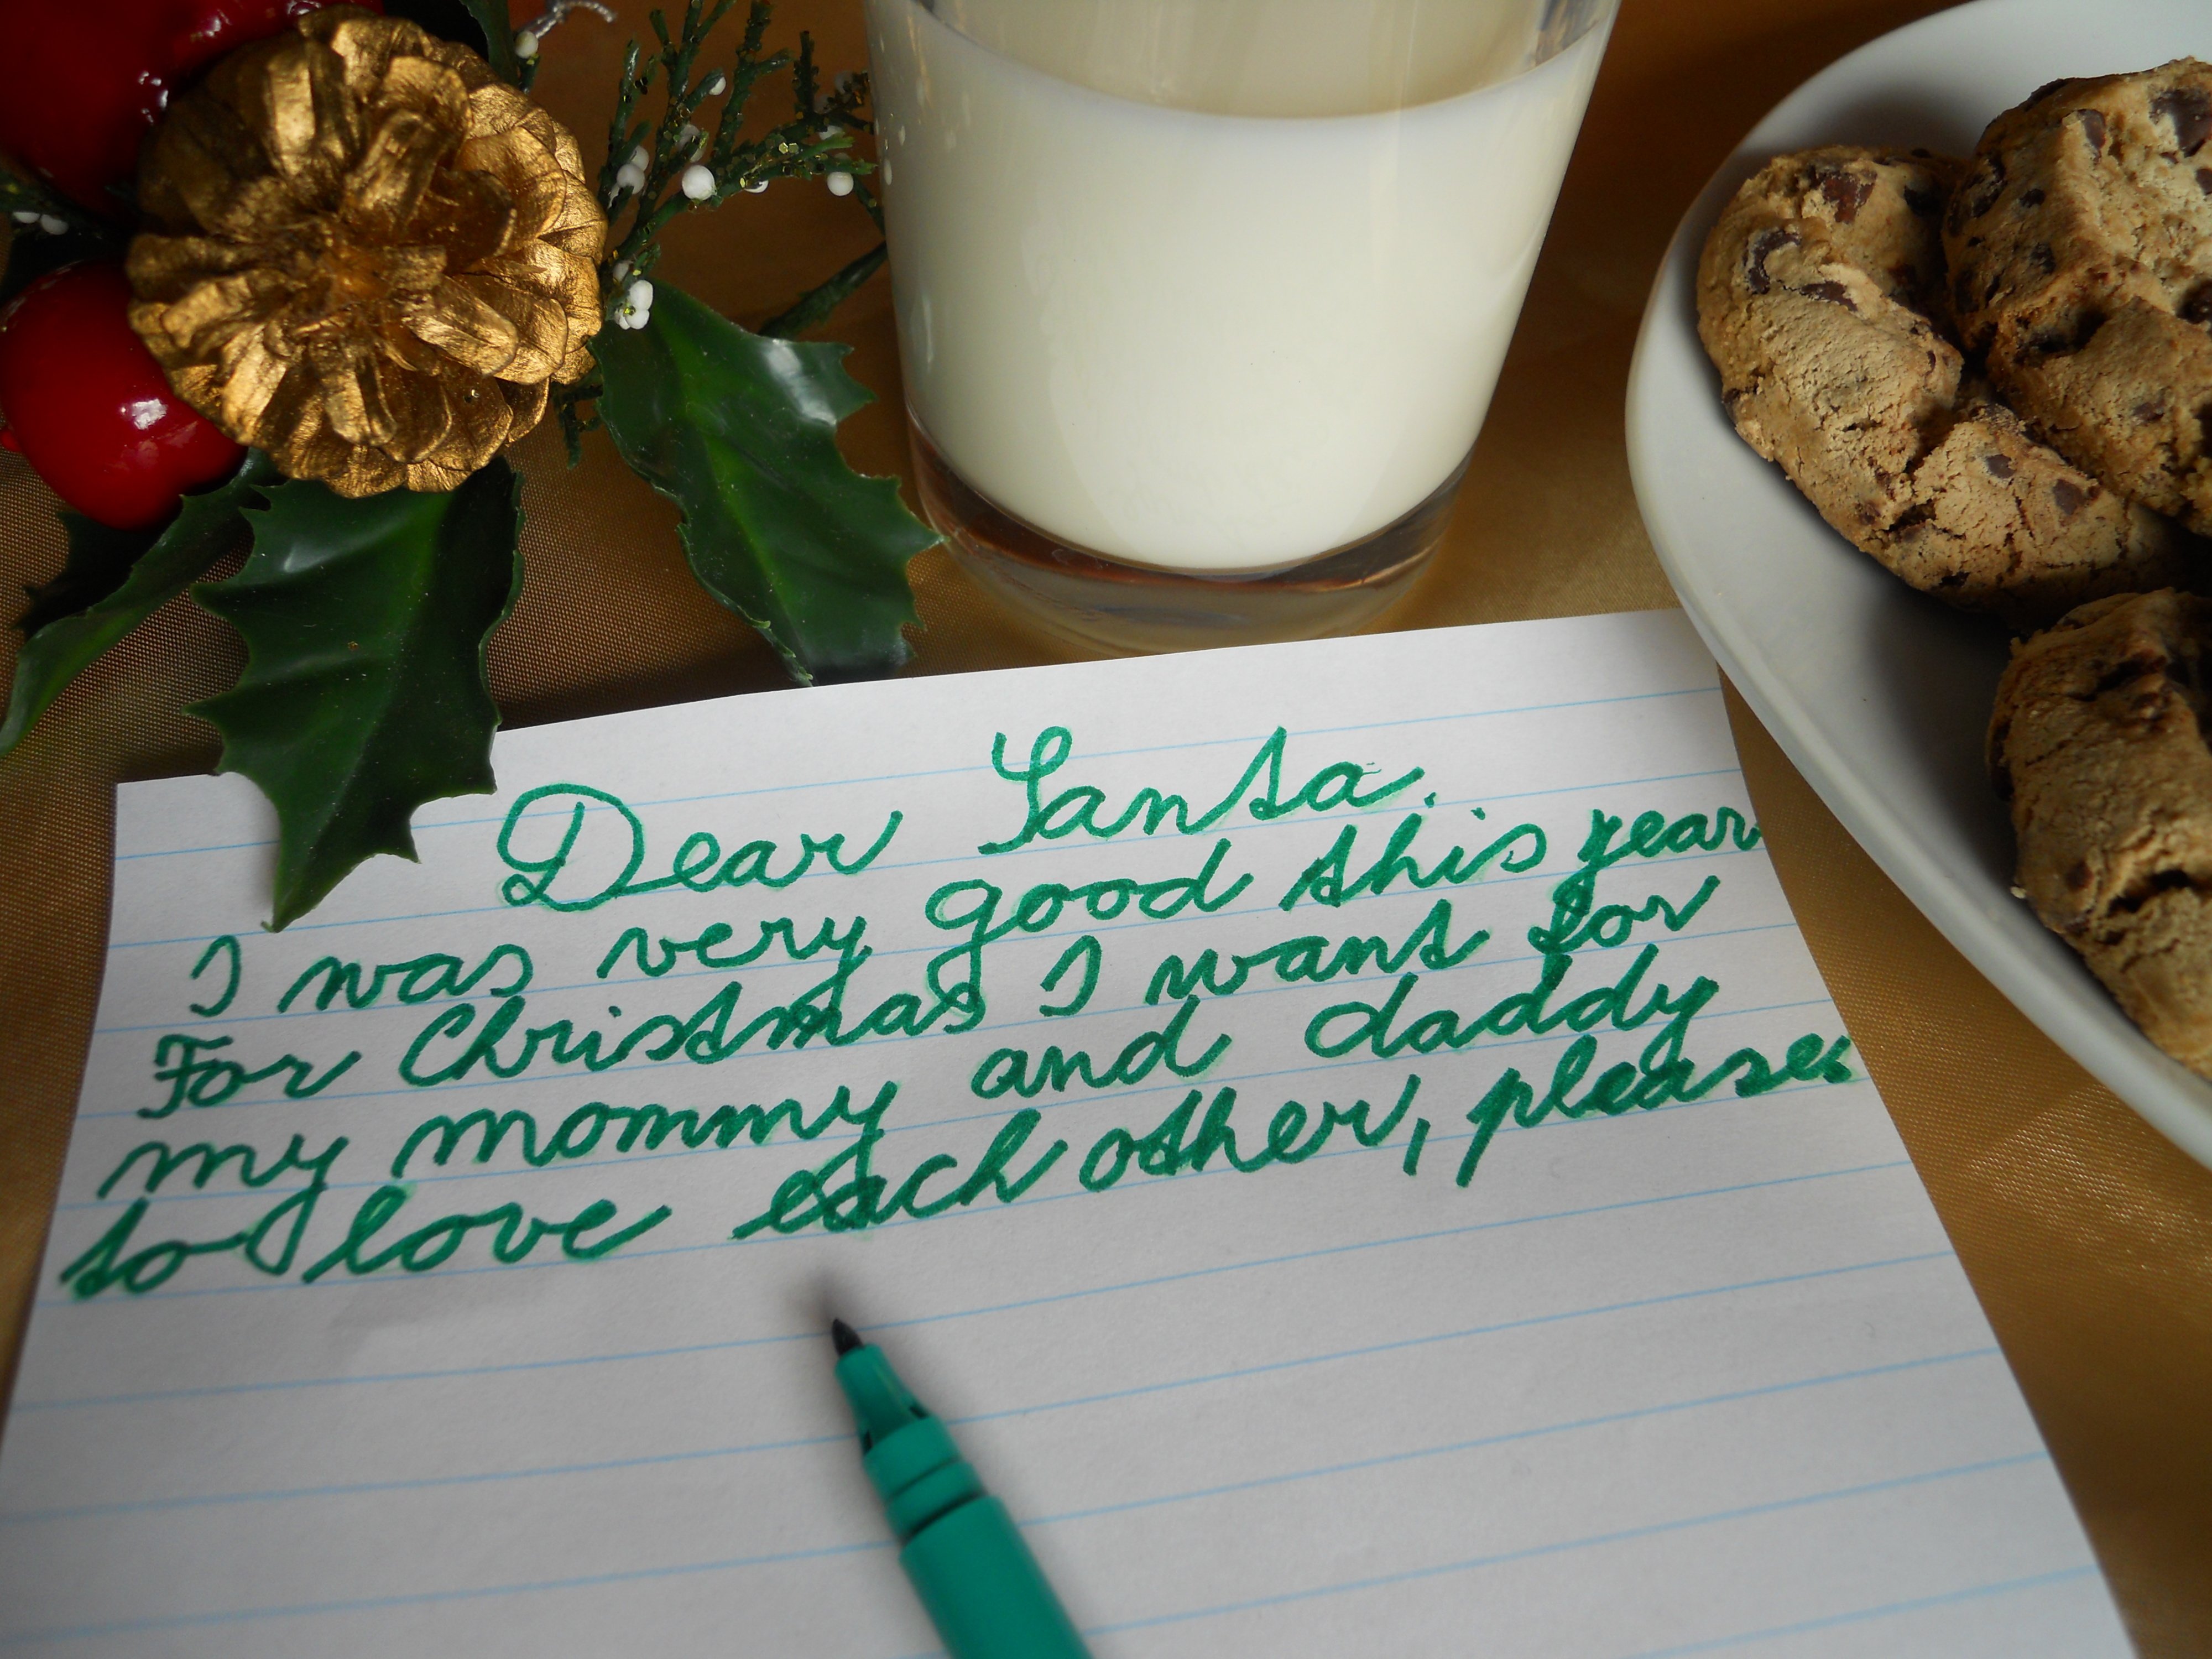 Dear Santa.
I was very good this year
For Christmas I want for
my mommy and daddy
to love each other, please.